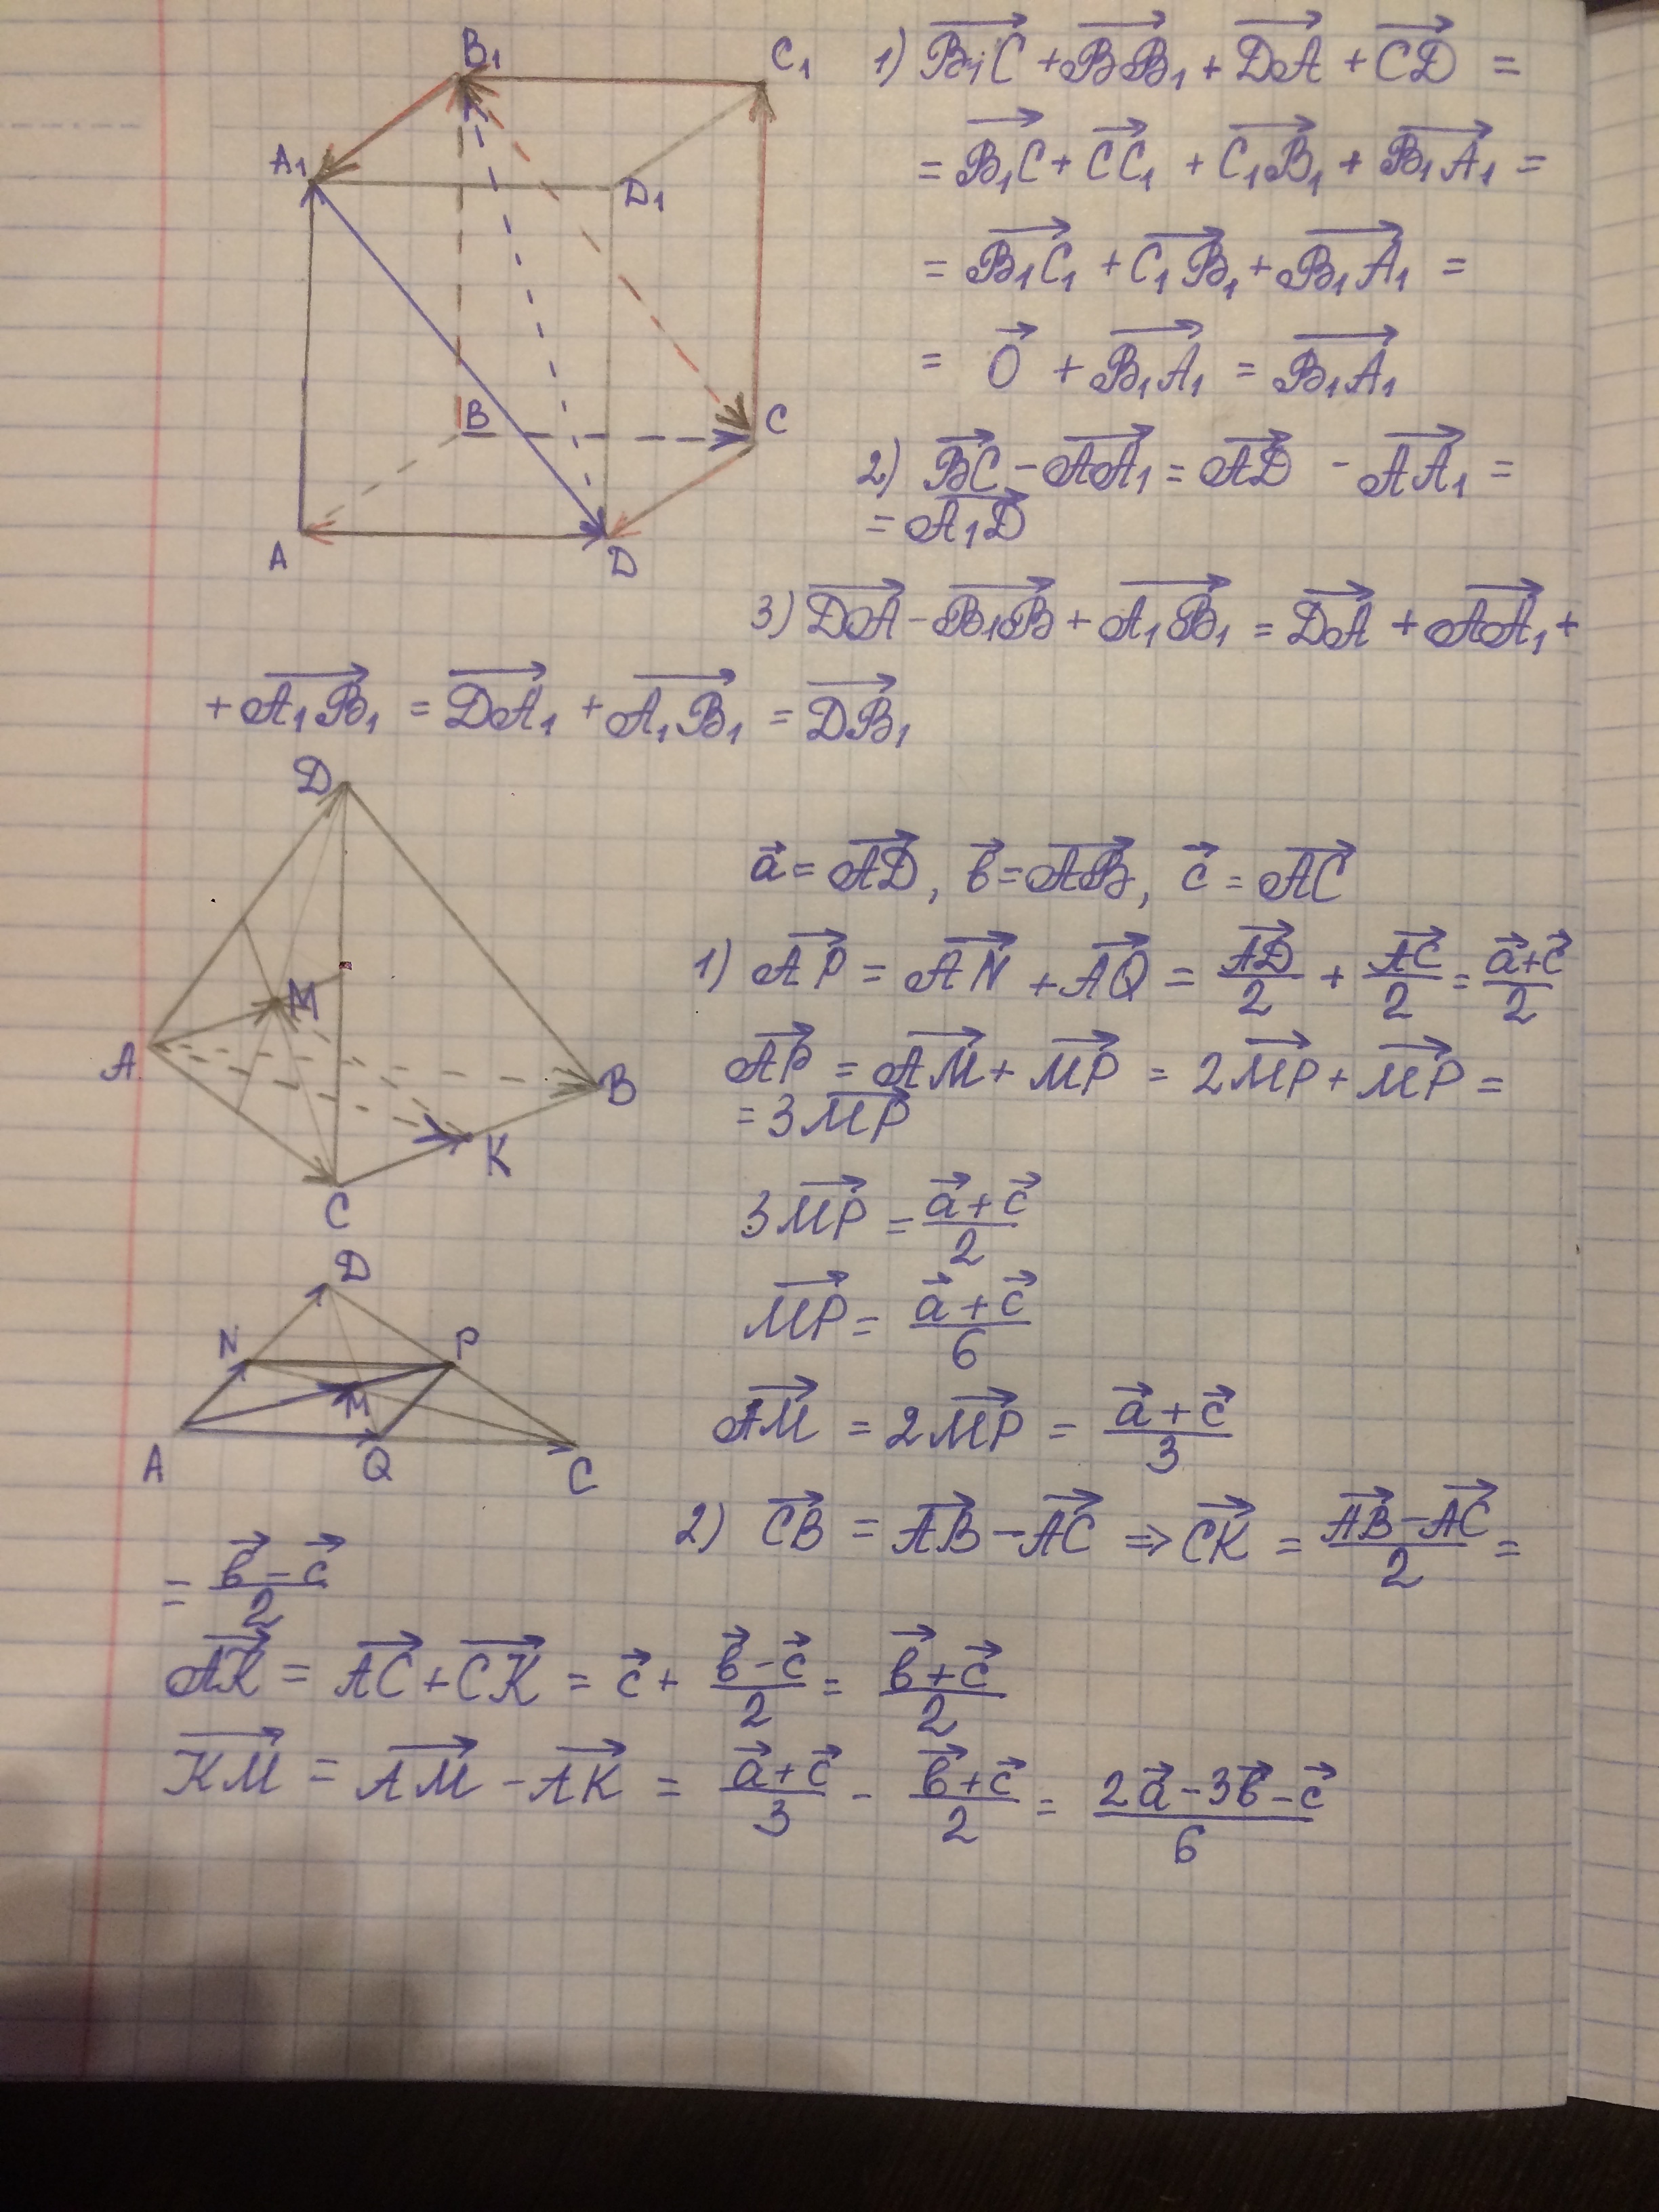 B₁ C₁ A₁ D₁ B C A D
1) B₁C + BB₁ + DA + CD =
= B₁C + CC₁ + C₁B₁ + B₁A₁ =
= B₁C₁ + C₁B₁ + B₁A₁ =
= 0 + B₁A₁ = B₁A₁
2) BC - AA₁ = AD - AA₁ =
= A₁D
3) DA - B₁B + A₁B₁ = DA + AA₁ +
+ A₁B₁ = DA₁ + A₁B₁ = DB₁
D M A B K C
a = AD, в = AB, c = AC
1) AP = AN + AQ = AD/2 + AC/2 = a+c/2
AP = AM + MP = 2MP + MP =
= 3MP
3MP = a+c/2
MP = a+c/6
D N P M A Q C
AM = 2MP = a+c/3
2) CB = AB - AC ⇒ CK = AB-AC/2 =
= в-c/2
AK = AC + CK = c + в-c/2 = в+c/2
KM = AM - AK = a+c/3 - в+c/2 = 2a-3в-c/6